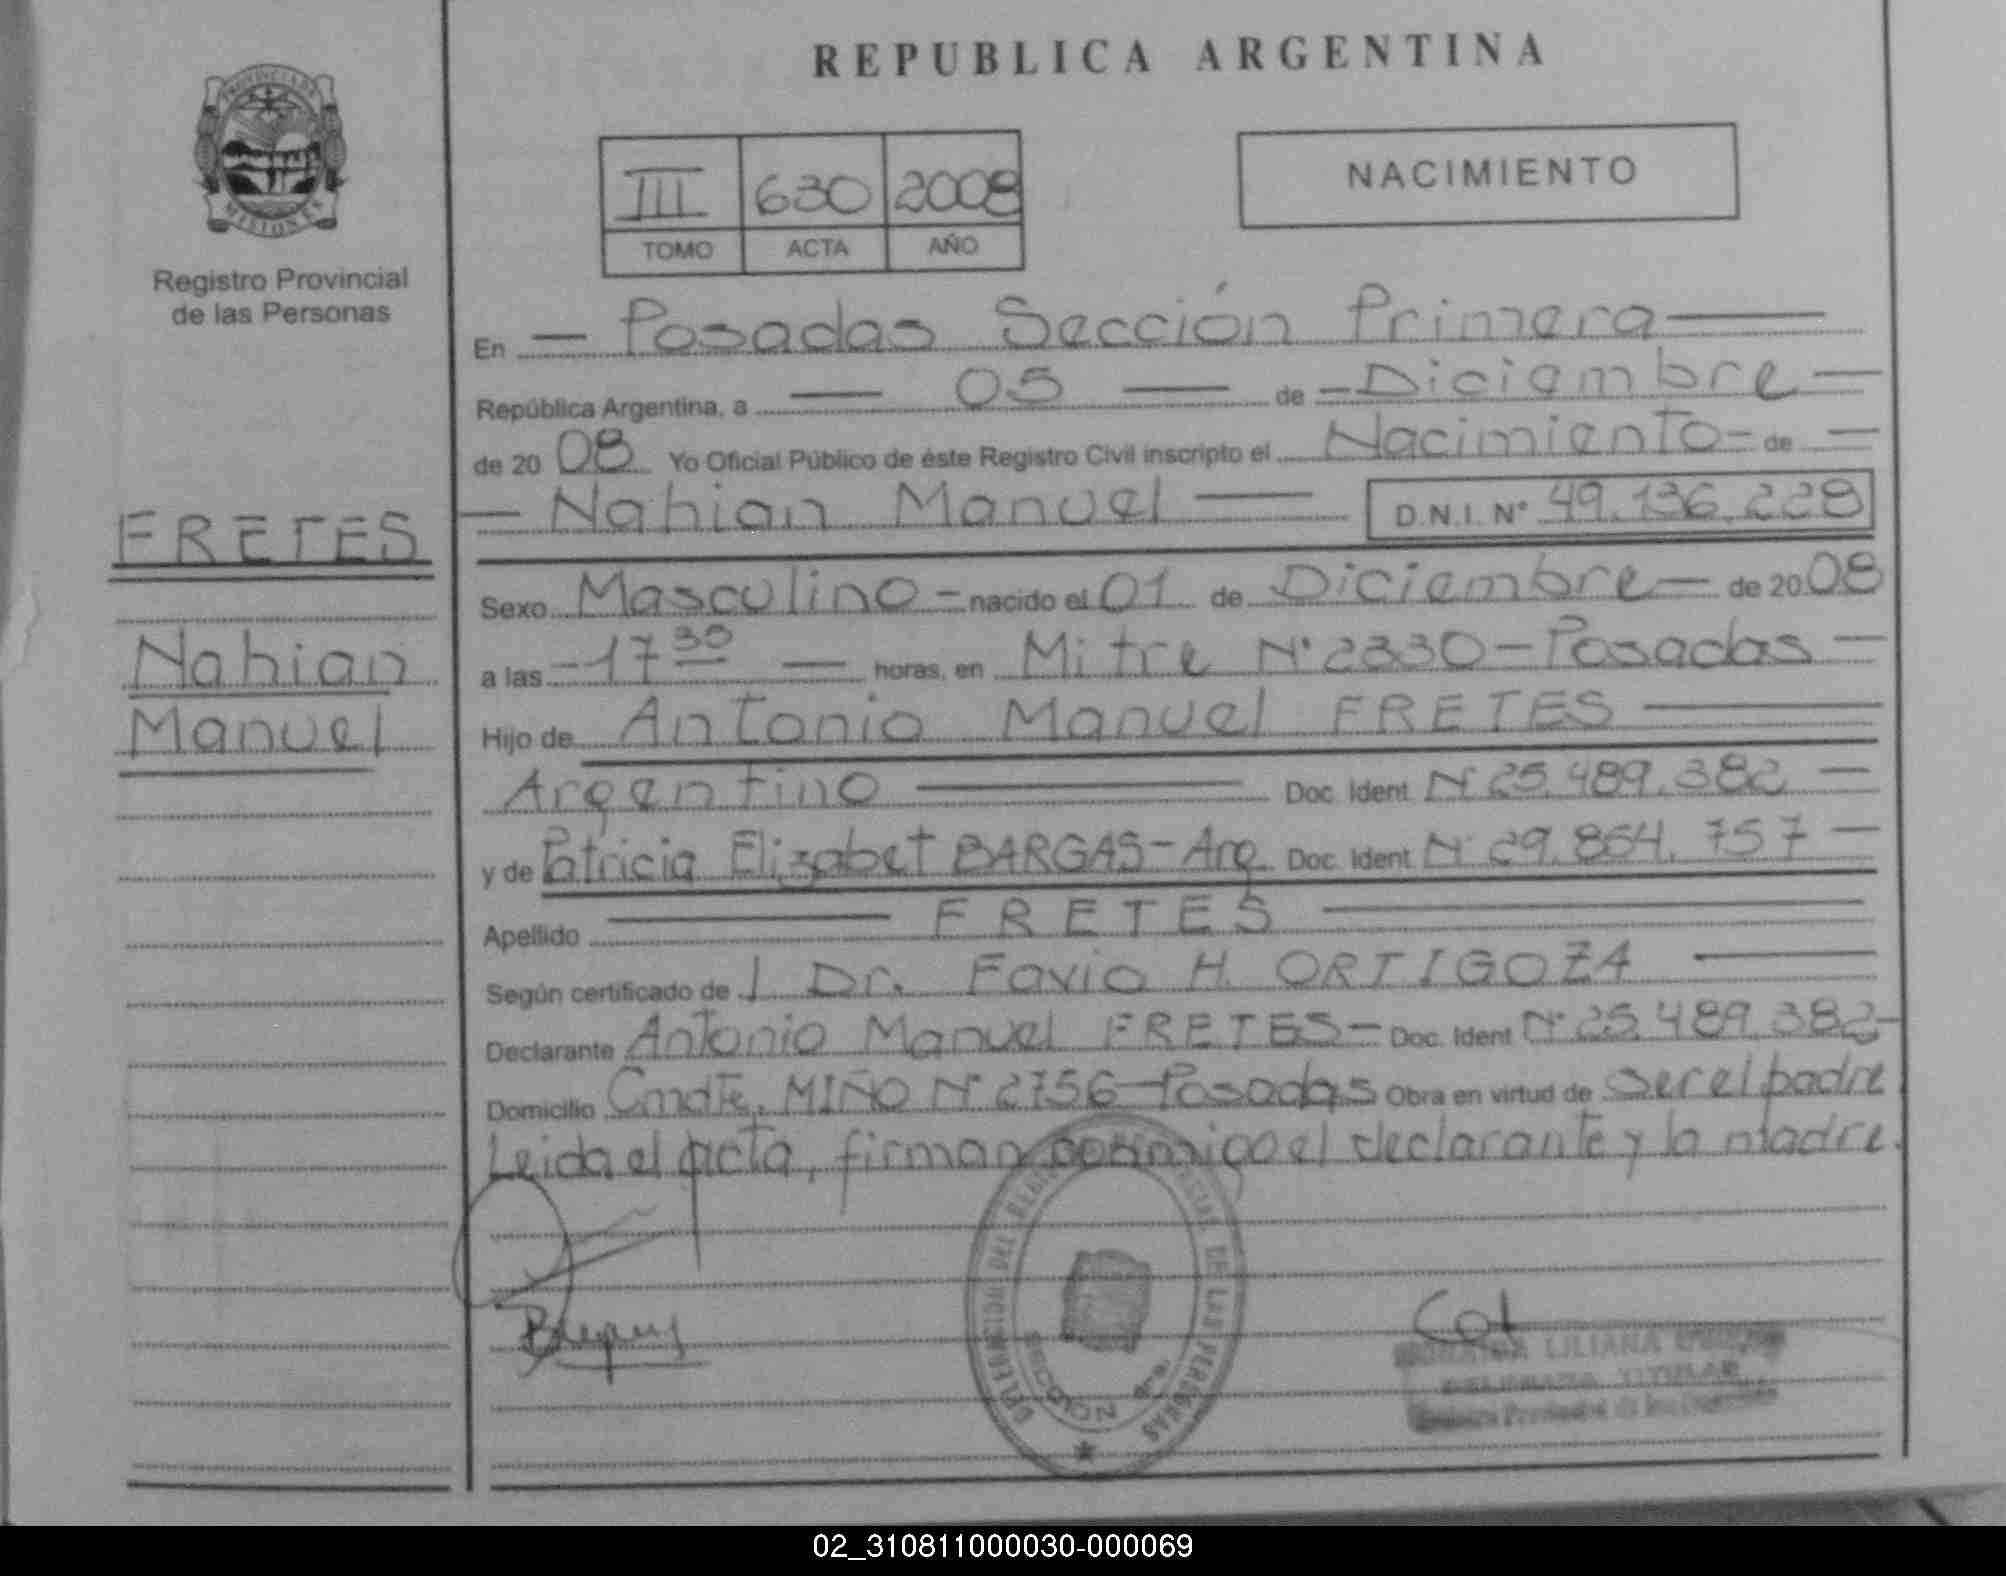 REPUBLICA ARGENTINA
PROVINCIA DE
MISIONES
Registro Provincial
de las Personas
III 630 2008
TOMO ACTA AÑO
NACIMIENTO
FRETES
Nahian
Manuel
En — Posadas Sección Primera —
República Argentina, a — 05 — de — Diciembre —
de 20 08 Yo Oficial Público de éste Registro Civil inscripto el Nacimiento - de —
— Nahian Manuel — D.N.I. N° 49.136.228
Sexo Masculino - nacido el 01 de Diciembre — de 20 08
a las - 17 30 — horas, en Mitre N° 2330 - Posadas —
Hijo de Antonio Manuel FRETES —
Argentino — Doc. Ident N° 25.489.382 —
y de Patricia Elizabet BARGAS - Arg. Doc. Ident N° 29.854.757 —
Apellido — FRETES —
Según certificado de l Dr. Favio H. ORTIGOZA —
Declarante Antonio Manuel FRETES - Doc. Ident N° 25.489.382 -
Domicilio Cmdte. MIÑO N° 2756 - Posadas Obra en virtud de ser el padre
Leida el acta, firman conmigo el declarante y la madre.
DEL DE LAS PERSONAS
SECCION
LILIANA
TITULAR
02_310811000030-000069